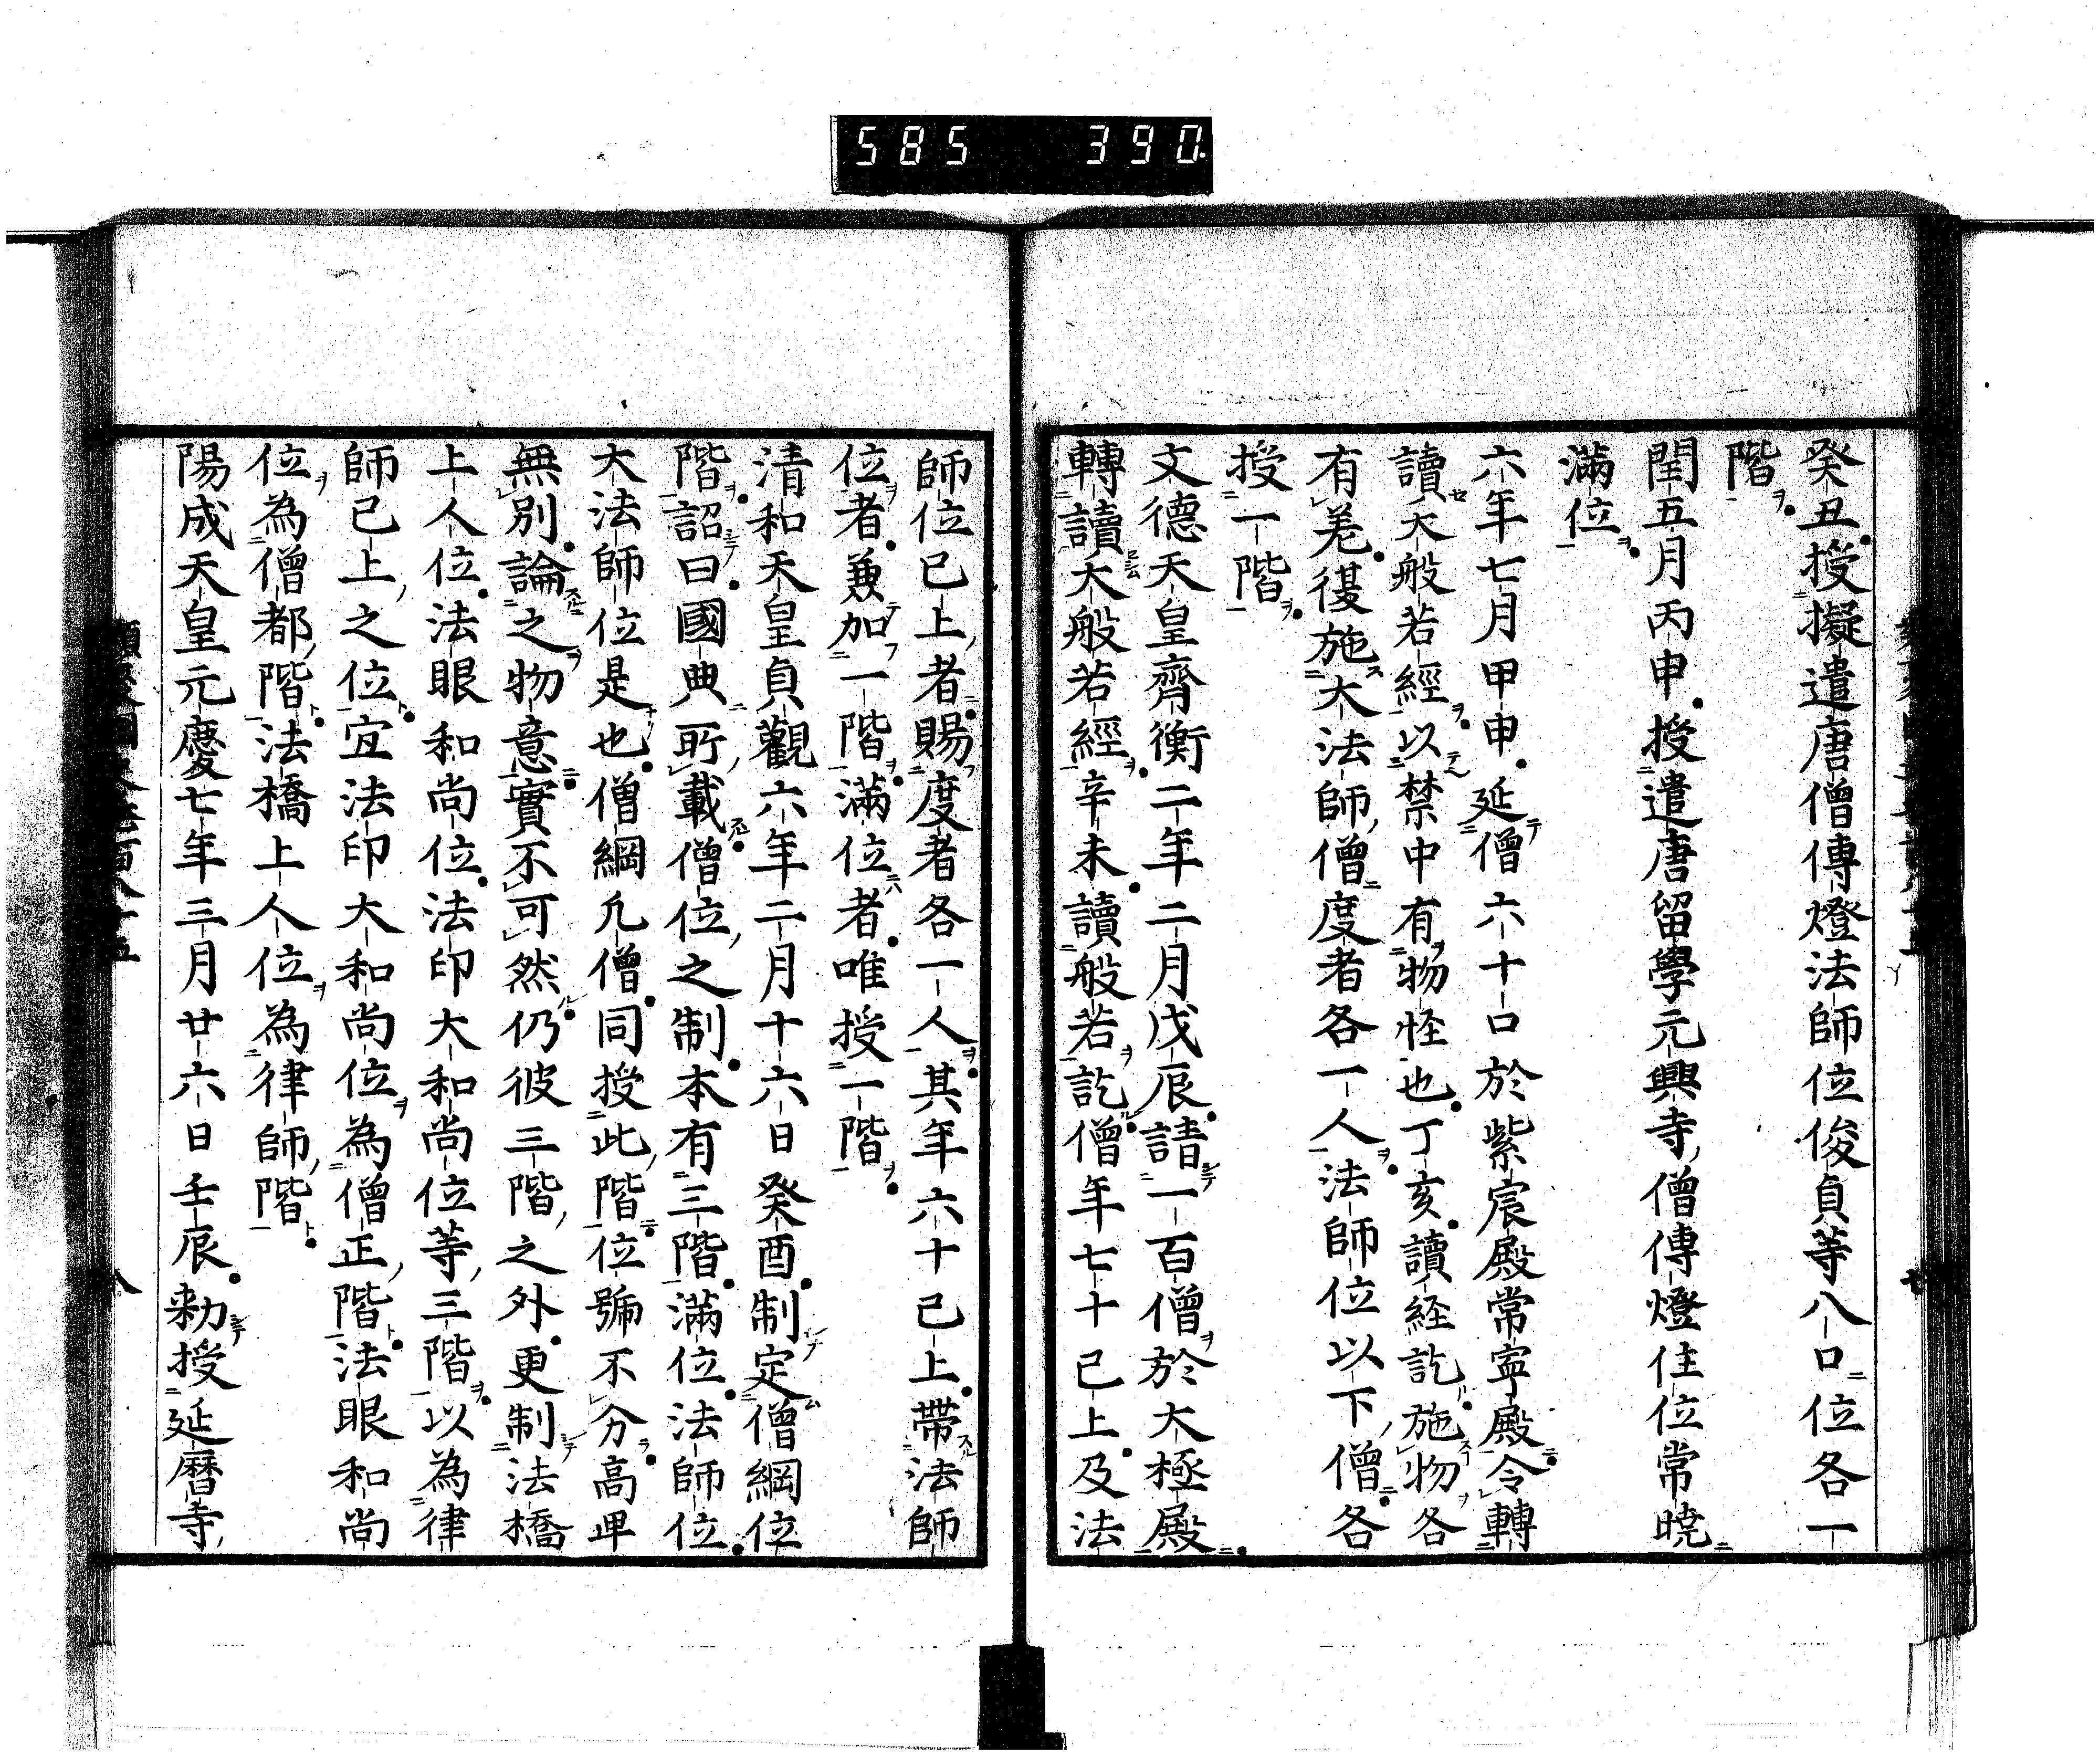 585 390
癸丑授擬遣唐僧傳燈法師位俊貞等八口位各一
階
閏五月丙申授遣唐留學元興寺僧傳燈住位常曉
滿位
六年七月甲申延僧六十口於紫宸殿常寧殿令轉
讀大般若經以禁中有物怪也丁亥讀経訖施物各
有差復施大法師僧度者各一人法師位以下僧各
授一階
文德天皇齊衡二年二月戊辰請一百僧於大極殿
轉讀大般若經辛未讀般若訖僧年七十已上及法
師位已上者賜度者各一人其年六十已上帶法師
位者兼加一階滿位者唯授一階
清和天皇貞觀六年二月十六日癸酉制定僧綱位
階詔曰國典所載僧位之制本有三階滿位法師位
大法師位是也僧綱凡僧同授此階位號不分高卑
無別論之物意實不可然仍彼三階之外更制法橋
上人位法眼和尚位法印大和尚位等三階以為律
師已上之位宜法印大和尚位為僧正階法眼和尚
位為僧都階法橋上人位為律師階
陽成天皇元慶七年三月廿六日壬辰勅授延曆寺
八